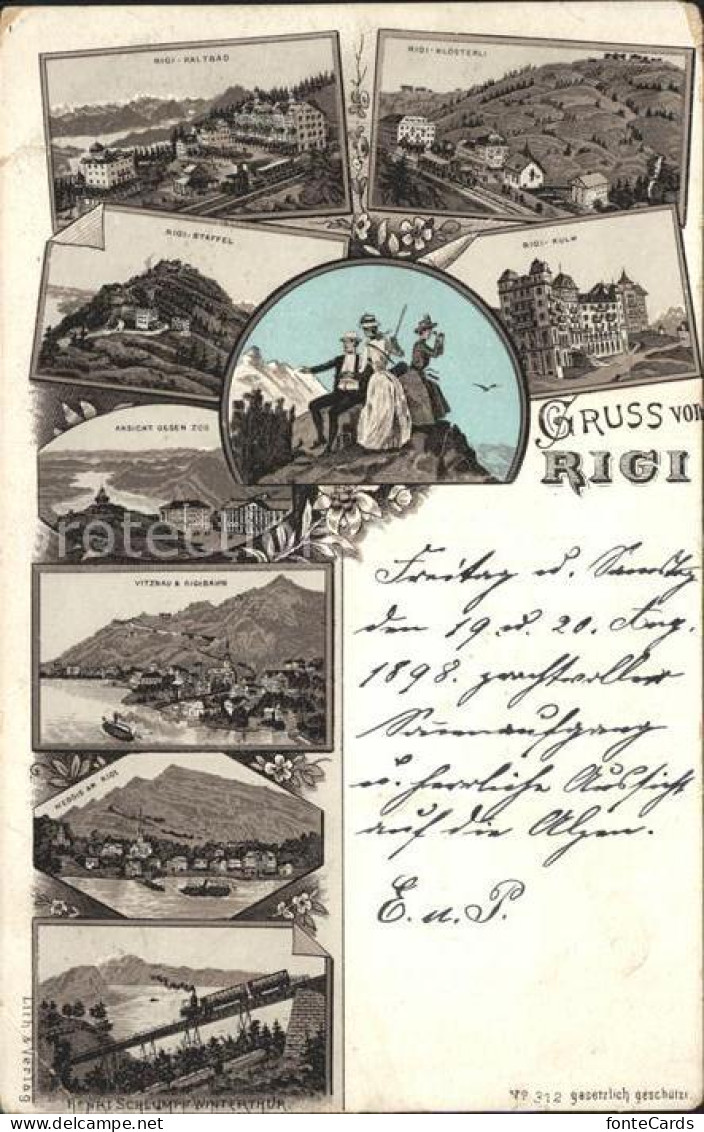 RIGI-KALTBAD
RIGI-KLÖSTERLI
RIGI-STAFFEL
RIGI-KULM
ANSICHT GEGEN ZUG
GRUSS von
RIGI
VITZNAU & RIGIBAHN
WEGGIS AM RIGI
Freitag u. Samstag
den 19. u. 20. Aug.
1898. prachtvoller
Sonnenaufgang
u. herrliche Aussicht
auf die Alpen.
E. u. P.
Lith. & Verlag
HENRI SCHLUMPF WINTERTHUR.
Nº 312 gesetzlich geschützt.
fonteCards